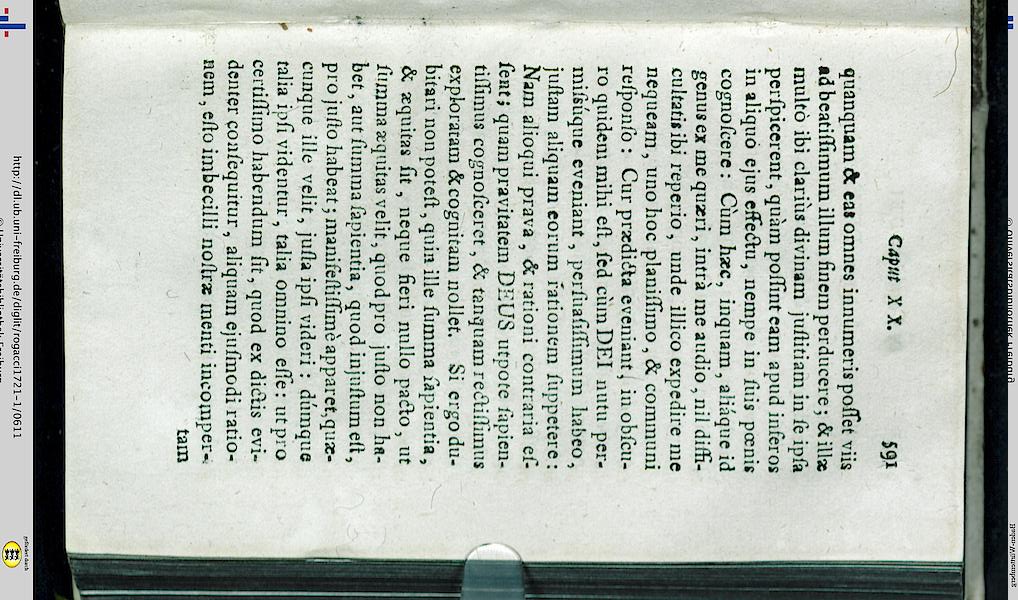 Caput XX. 591
quanquam & eas omnes innumeris posſet viis
ad beatiſſimum illum finem perducere; & illæ
multò ibi clariùs divinam juſtitiam in ſe ipſa
perſpicerent, quàm poſſint eam apud inferos
in aliquo ejus effectu, nempe in ſuis pœnis
cognoſcere: Cùm hæc, inquam, aliáque id
genus ex me quæri, intrà me audio, nil diffi-
cultatis ibi reperio, unde illico expedire me
nequeam, uno hoc planiſſimo, & communi
reſponſo: Cur prædicta eveniant, in obſcu-
ro quidem mihi eſt, ſed cùm DEI nutu per-
miſsúque eveniant, perſuaſiſſimum habeo,
juſtam aliquam eorum rationem ſuppetere:
Nam alioqui prava, & rationi contraria eſ-
ſent; quam pravitatem DEUS utpote ſapien-
tiſſimus cognoſceret, & tanquam rectiſſimus
exploratam & cognitam nollet. Si ergo du-
bitari non poteſt, quin ille ſumma ſapientia,
& æquitas ſit, neque fieri nullo pacto, ut
ſumma æquitas velit, quod pro juſto non ha-
bet, aut ſumma ſapientia, quod injuſtum eſt,
pro juſto habeat; manifeſtiſſimè apparet, quæ-
cunque ille velit, juſta ipſi videri: dúmque
talia ipſi videntur, talia omnino eſſe: ut pro
certiſſimo habendum ſit, quod ex dictis evi-
denter conſequitur, aliquam ejuſmodi ratio-
nem, eſto imbecilli noſtræ menti incomper-
tam
http://dl.ub.uni-freiburg.de/diglit/rogacci1721-1/0611
© Universitätsbibliothek Freiburg
gefördert durch